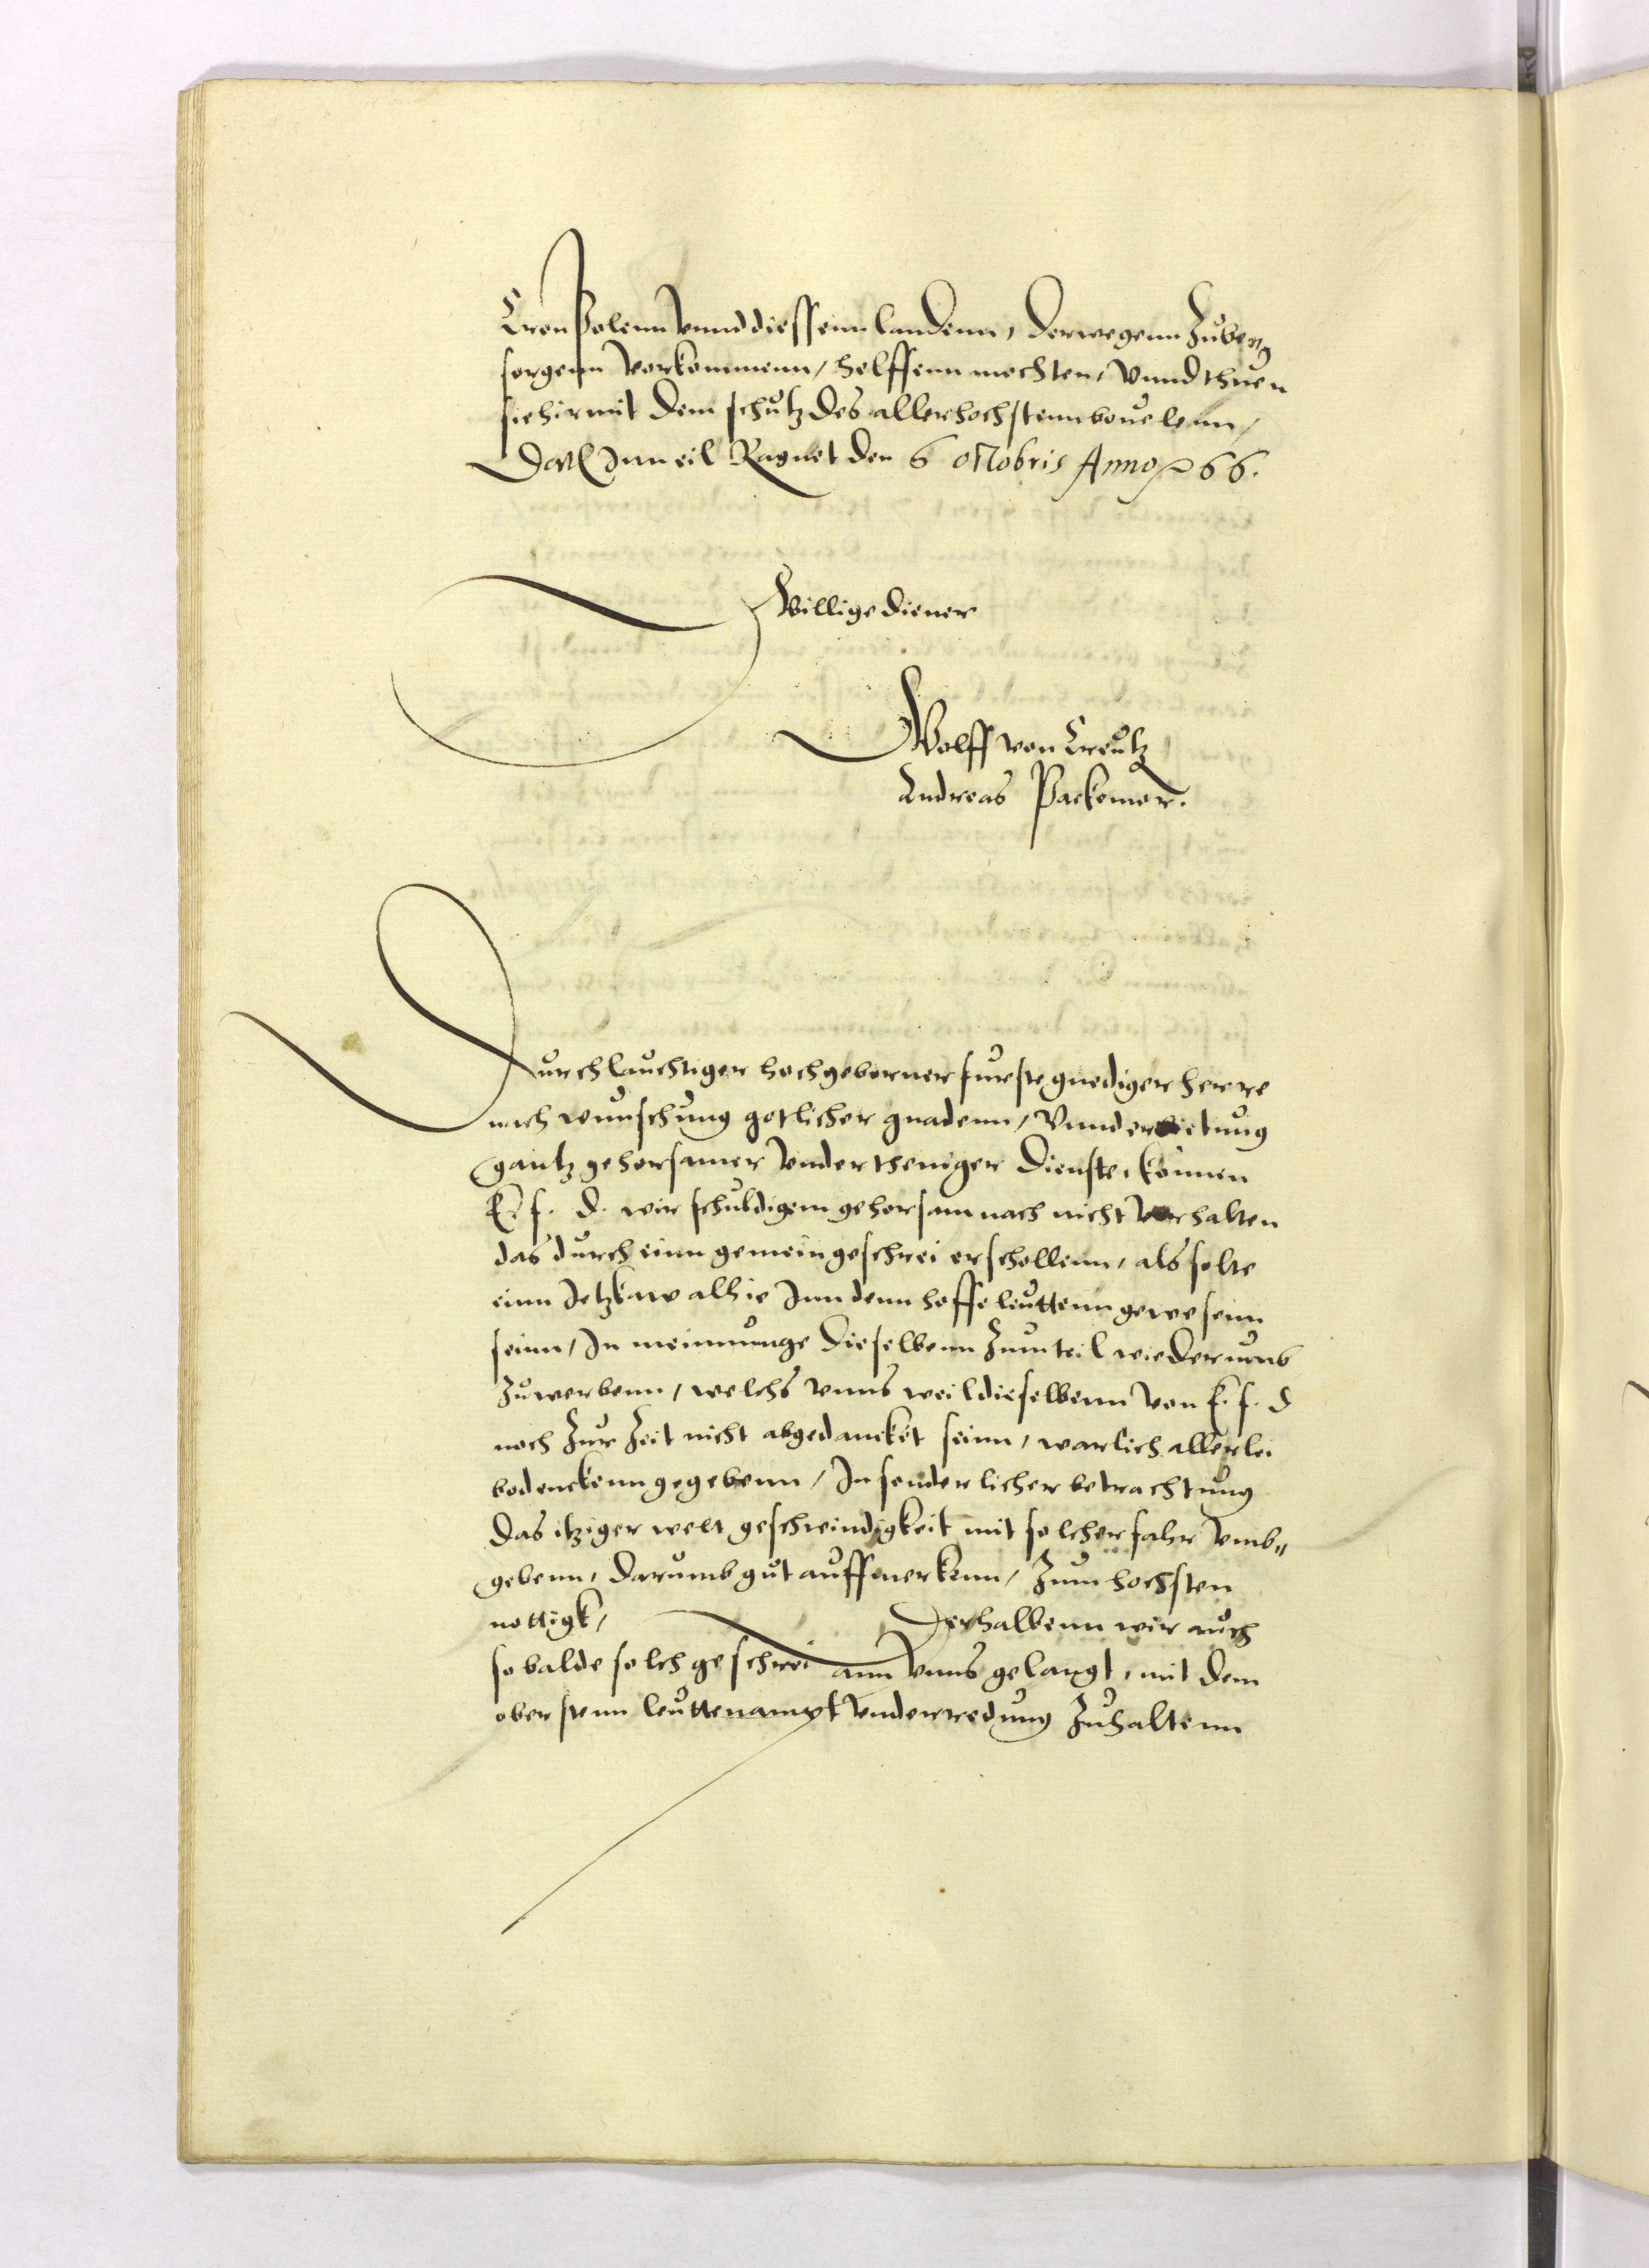 Cron Polenn vnnd diessenn landenn, derwegenn zubeu⸗
sorgenn vorkommenn, helffenn mochten, Vnnd thuen
sie hirmit dem schutz des allerhochstenn beuelenn,
Datum Inn eil Ragnet den 6 octobris Anno 66.
Willige diener
Wolff von Creutz
Andreas Packemor.
Durchlauchtiger hochgeborner furste gnediger herre
nach wunschung gotlicher gnadenn, Vnnd erbietung
gantz gehorsamer vndertheniger dienste, konnen
E. f. d. wir schuldigem gehorsam nach nicht verhalten
das durch einn gemein geschrei erschollenn, als solte
einn Jetzkaw alhie Inn denn hoffeleuttenn gewesenn
seinn, In meinnunge dieselbenn zum teil wiederumb
zuwerbenn, welchs vnns weil dieselbenn von E. f. d
noch zur zeit nicht abgedancket seinn, warlich allerlei
bedenckenn gegebenn, In sonderlicher betrachtung
das itziger welt geschwindigkeit mit solcher fahr vmb⸗
gebenn, darumb gut auffmerkenn, zum hochsten
nottigk, Derhalbenn wir auch
so balde solch geschrei ann vnns gelangt, mit dem
oberstenn leuttenampt vnderredung zuhaltenn